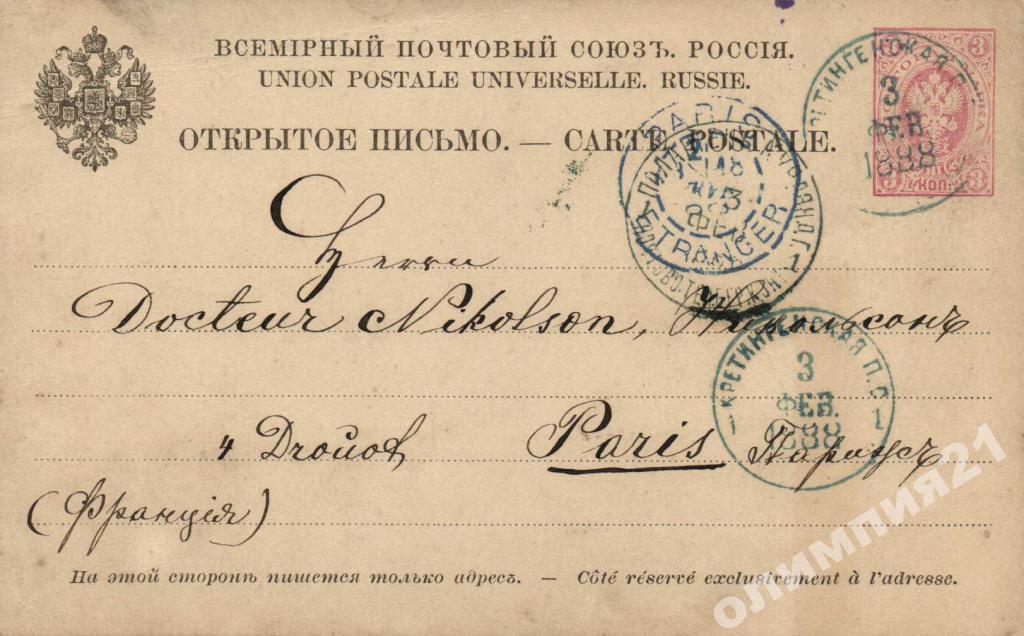 ВСЕМІРНЫЙ ПОЧТОВЫЙ СОЮЗЪ. РОССІЯ.
UNION POSTALE UNIVERSELLE. RUSSIE.
ОТКРЫТОЕ ПИСЬМО. — CARTE POSTALE.
3 3
3 КОП. 3
3
ФЕВ.
1888
PARIS
ETRANGER
Herrn
Docteur Nikolson, Никольсонъ
КРЕТИНГЕНСКАЯ П.О.
1 1
3
ФЕВ.
1888
4 Drouot Paris Парижъ
(Франція)
На этой сторонѣ пишется только адресъ. — Côté réservé exclusivement à l'adresse.
олимпия21